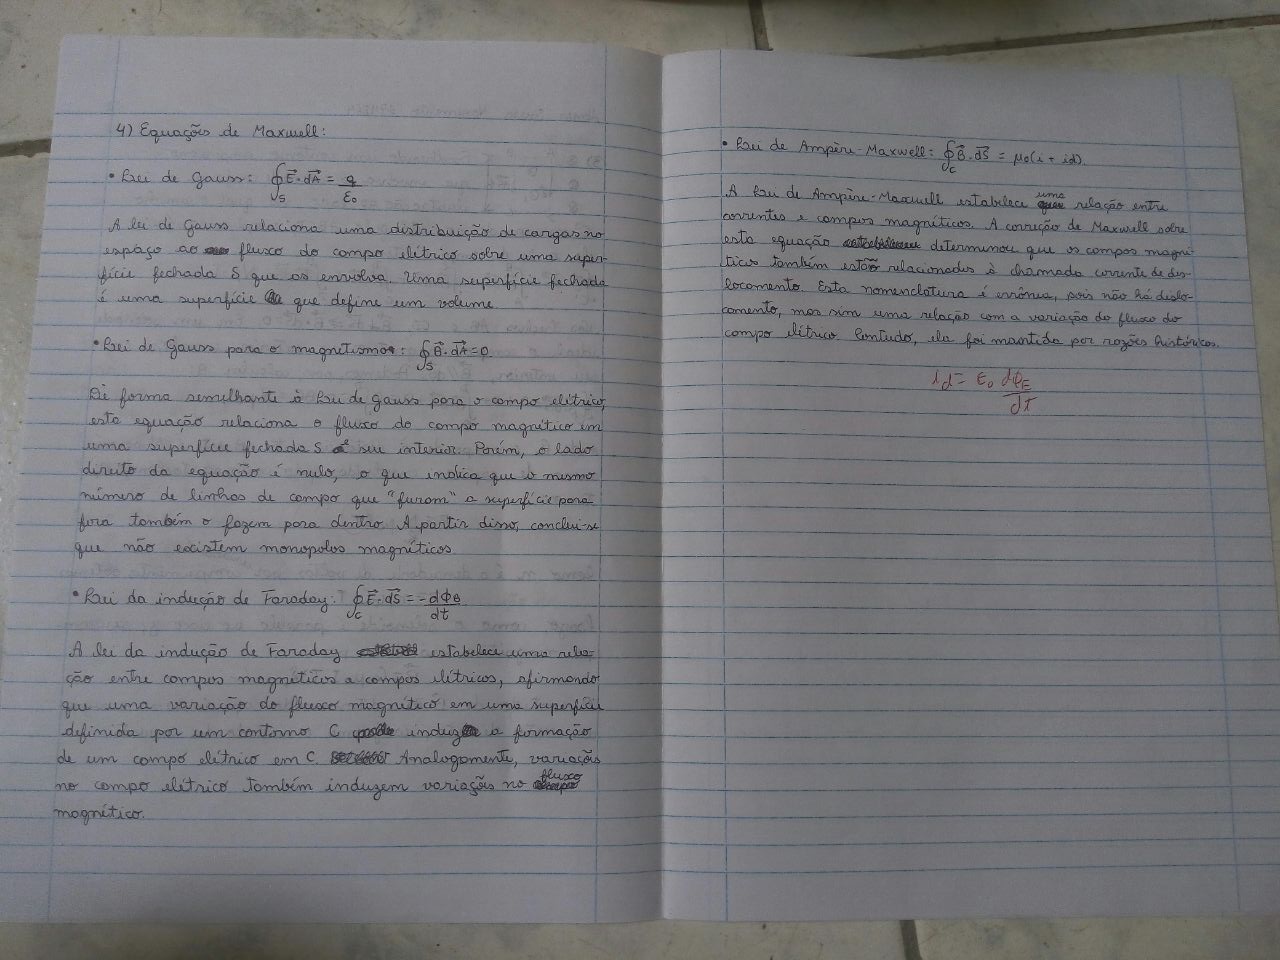 4) Equações de Maxwell:
• Lei de Gauss: ∮S E⃗·dA⃗ = q/ε0
A lei de Gauss relaciona uma distribuição de cargas no
espaço ao fluxo do campo elétrico sobre uma super-
fície fechada S que as envolva. Uma superfície fechada
é uma superfície que define um volume.
• Lei de Gauss para o magnetismo: ∮S B⃗·dA⃗ = 0
De forma semelhante à Lei de Gauss para o campo elétrico,
esta equação relaciona o fluxo do campo magnético em
uma superfície fechada S e seu interior. Porém, o lado
direito da equação é nulo, o que indica que o mesmo
número de linhas de campo que "furam" a superfície para
fora também o fazem para dentro. A partir disso, conclui-se
que não existem monopolos magnéticos.
• Lei da indução de Faraday: ∮C E⃗·dS⃗ = -dΦB/dt
A lei da indução de Faraday estabelece uma rela-
ção entre campos magnéticos a campos elétricos, afirmando
que uma variação do fluxo magnético em uma superfície
definida por um contorno C induz a formação
de um campo elétrico em C. Analogamente, variações
no campo elétrico também induzem variações no fluxo
magnético.
• Lei de Ampère-Maxwell: ∮C B⃗·dS⃗ = μ0(i + id)
A Lei de Ampère-Maxwell estabelece uma relação entre
correntes e campos magnéticos. A correção de Maxwell sobre
esta equação determinou que os campos magné-
ticos também estão relacionados à chamada corrente de des-
locamento. Esta nomenclatura é errônea, pois não há deslo-
camento, mas sim uma relação com a variação do fluxo do
campo elétrico. Contudo, ela foi mantida por razões históricas.
id = ε0 dΦE/dt